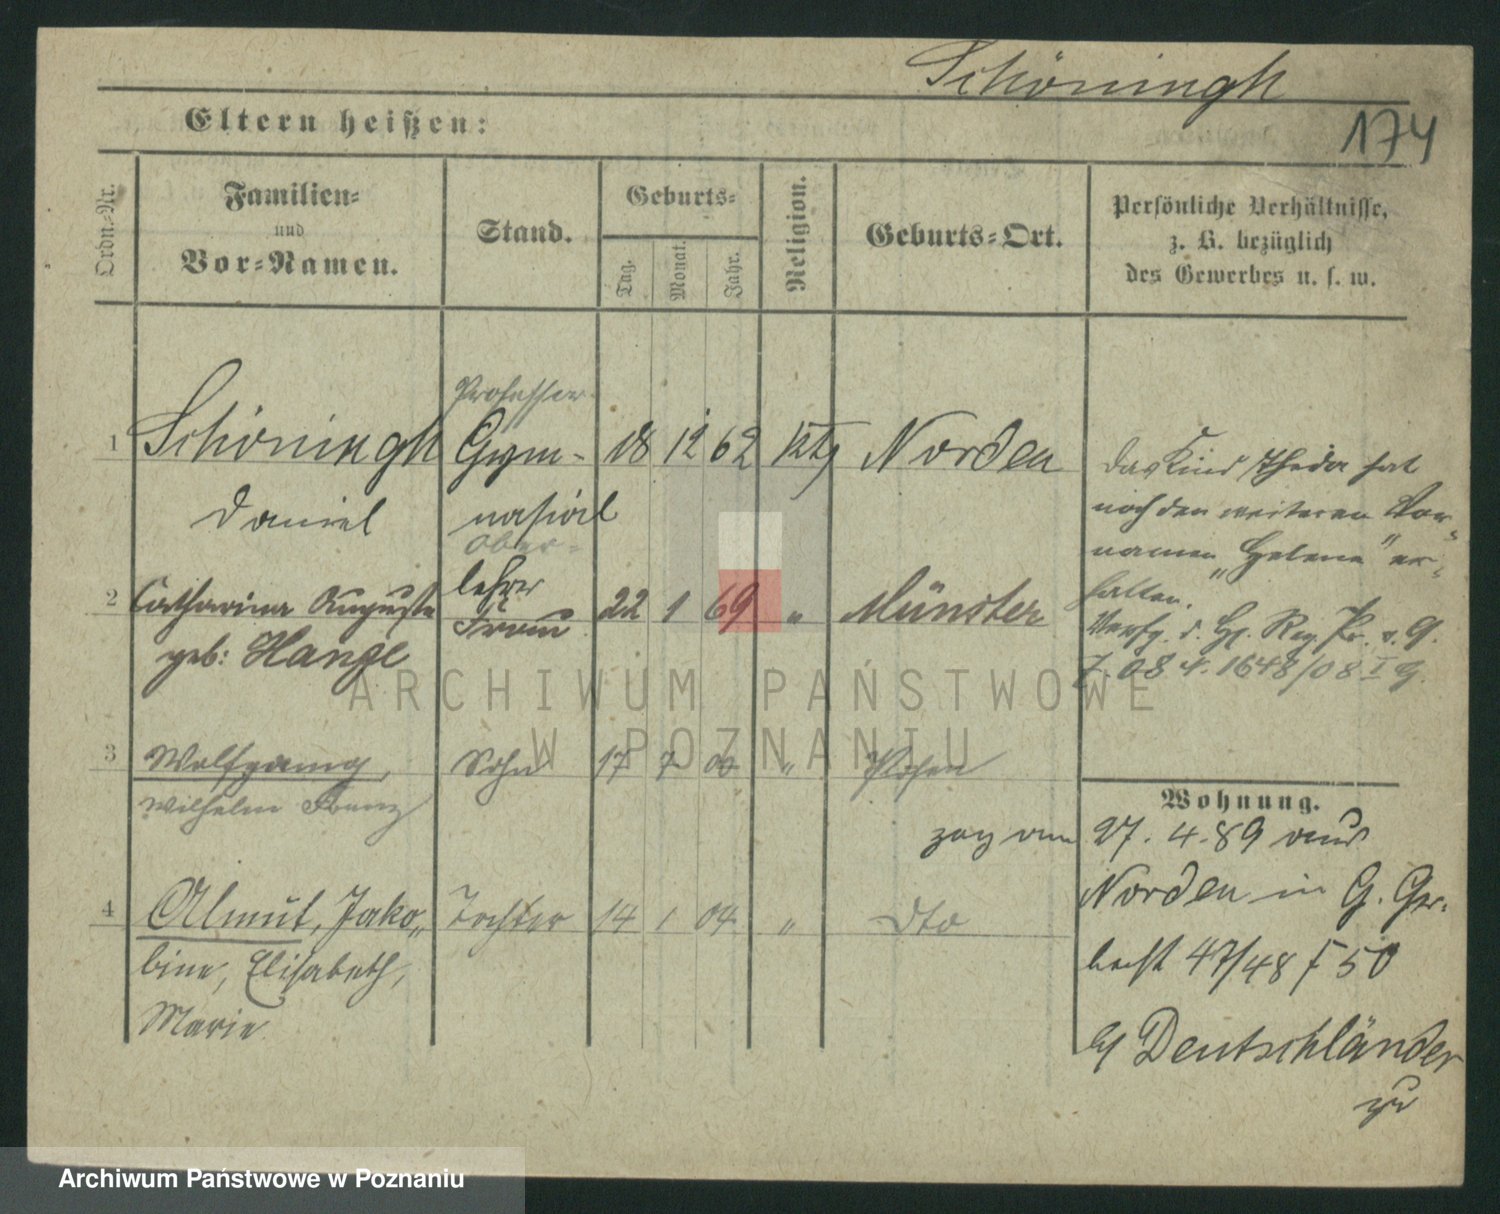 Schöningh
174
Eltern heißen:
Ordn.-Nr.
Familien-
und
Vor-Namen.
Stand.
Geburts-
Tag.
Monat.
Jahr.
Religion.
Geburts-Ort.
Persönliche Verhältnisse,
z. B. bezüglich
des Gewerbes u. s. w.
Professor
1 Schöningh Gym- 18 12 62 ktg Norden
Daniel nasial
Ober-
lehrer
2 Catharina Auguste Frau 22 1 69 " Münster
geb: Hange
das Kind Theda hat
noch den weiteren Vor-
namen "Helene" er-
halten.
Verfg. d. H. Reg. Pr. v. 9.
7. 08 N. 1648/08 I g.
3 Wolfgang, Sohn 17 7 00 " Posen
Wilhelm Franz
4 Almut, Jako- Tochter 14 1 04 " dto
bine, Elisabeth,
Marie
Wohnung.
zog am 27. 4. 89 aus
Norden in G. Ger-
47/48 50
b/ Deutschländer
zu
ARCHIWUM PAŃSTWOWE
W POZNANIU
Archiwum Państwowe w Poznaniu